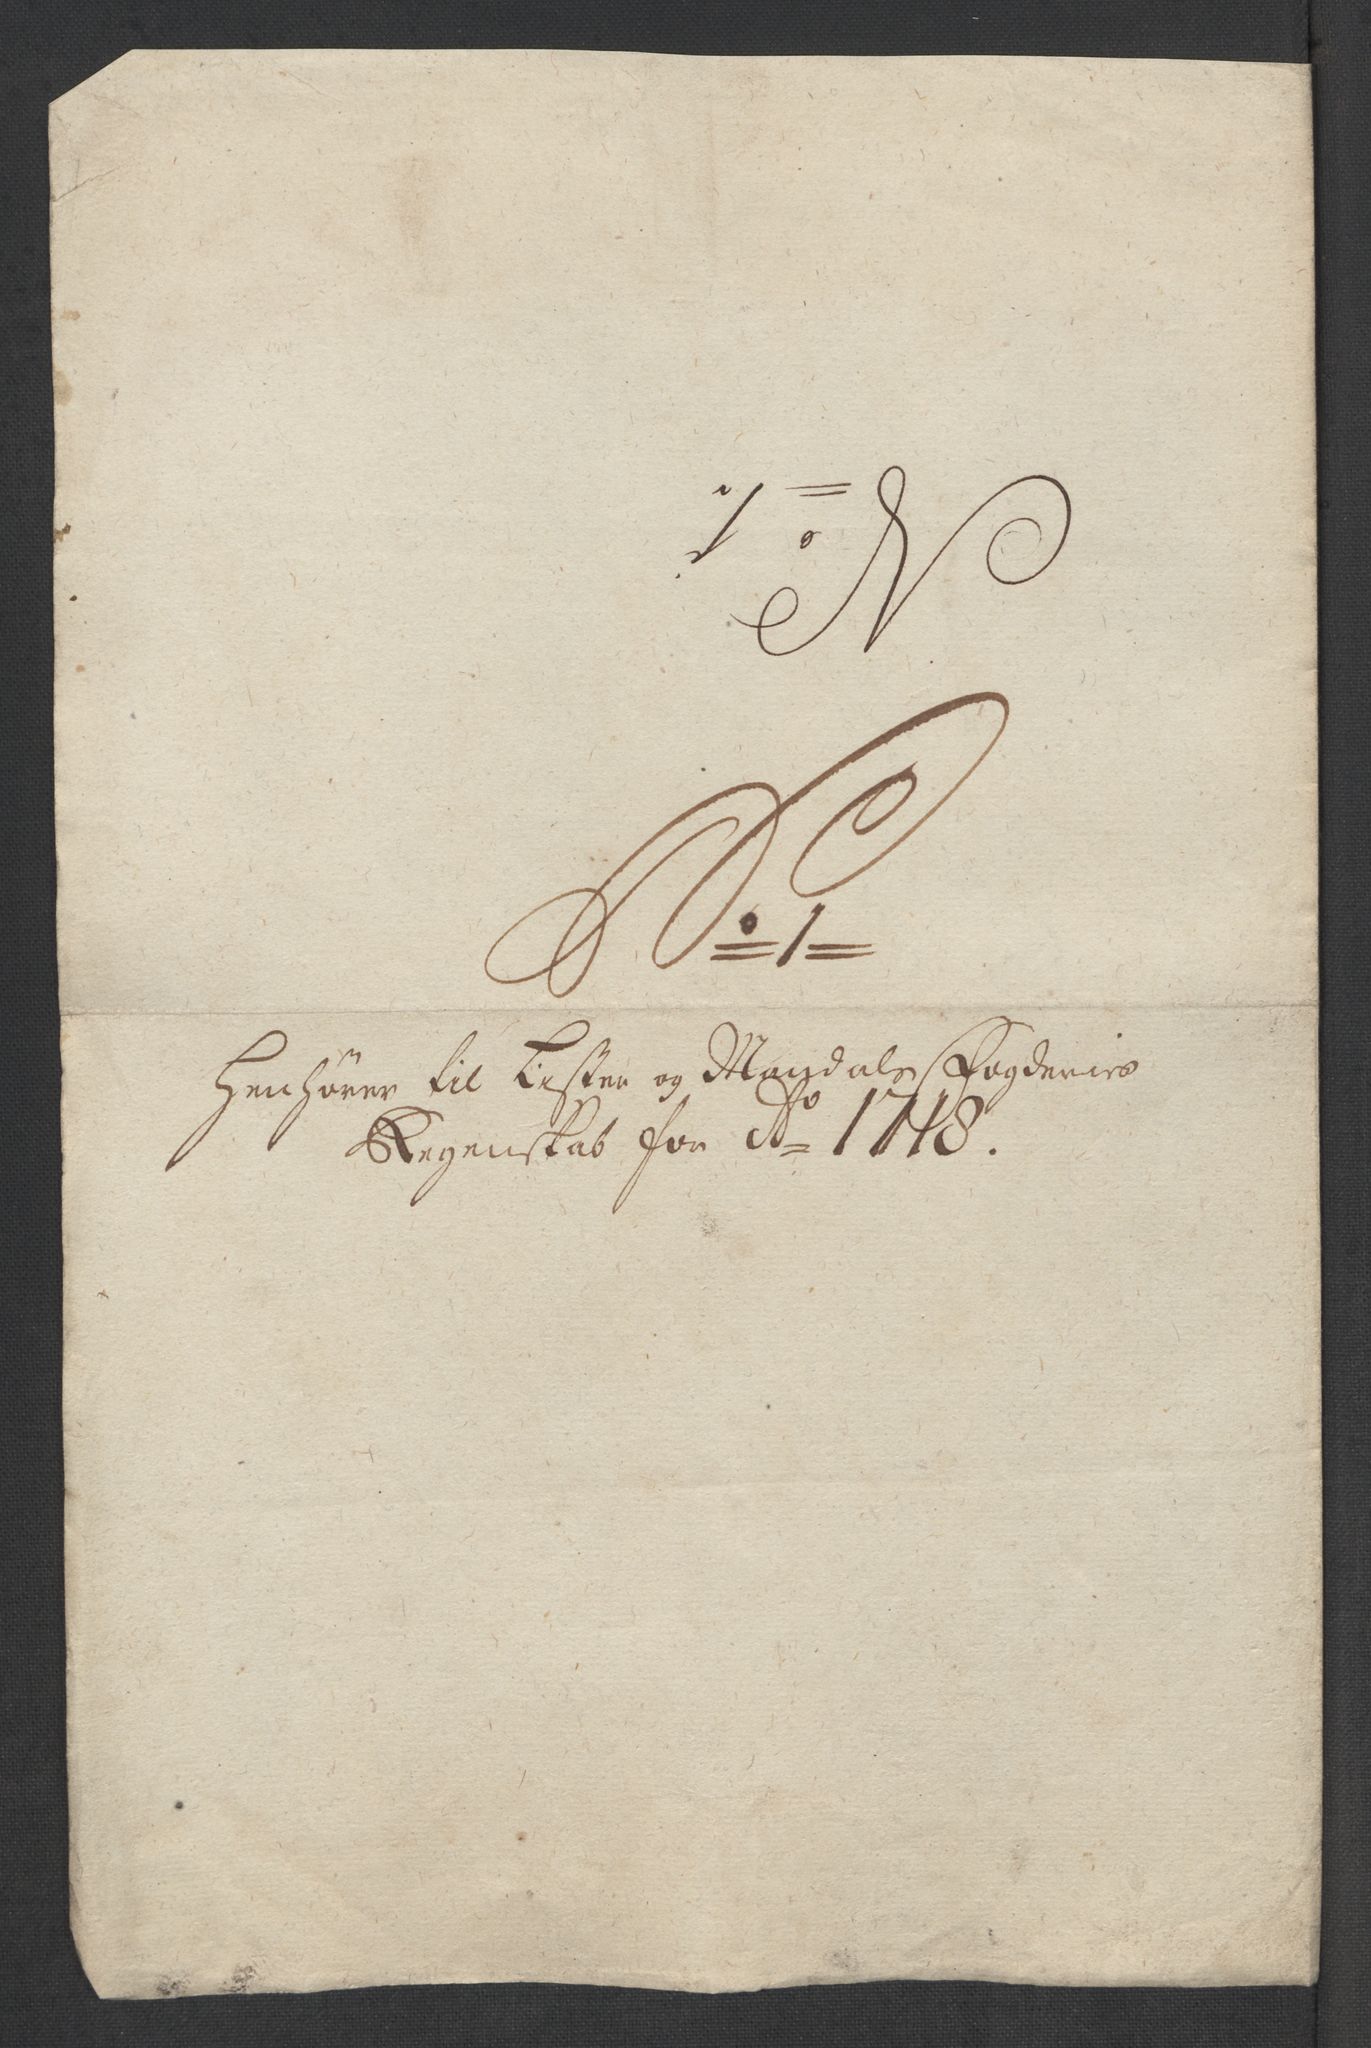 No 1
No 1
Henhörer til Lister og Mandals Fogderies
Regenskab for Ao 1718.